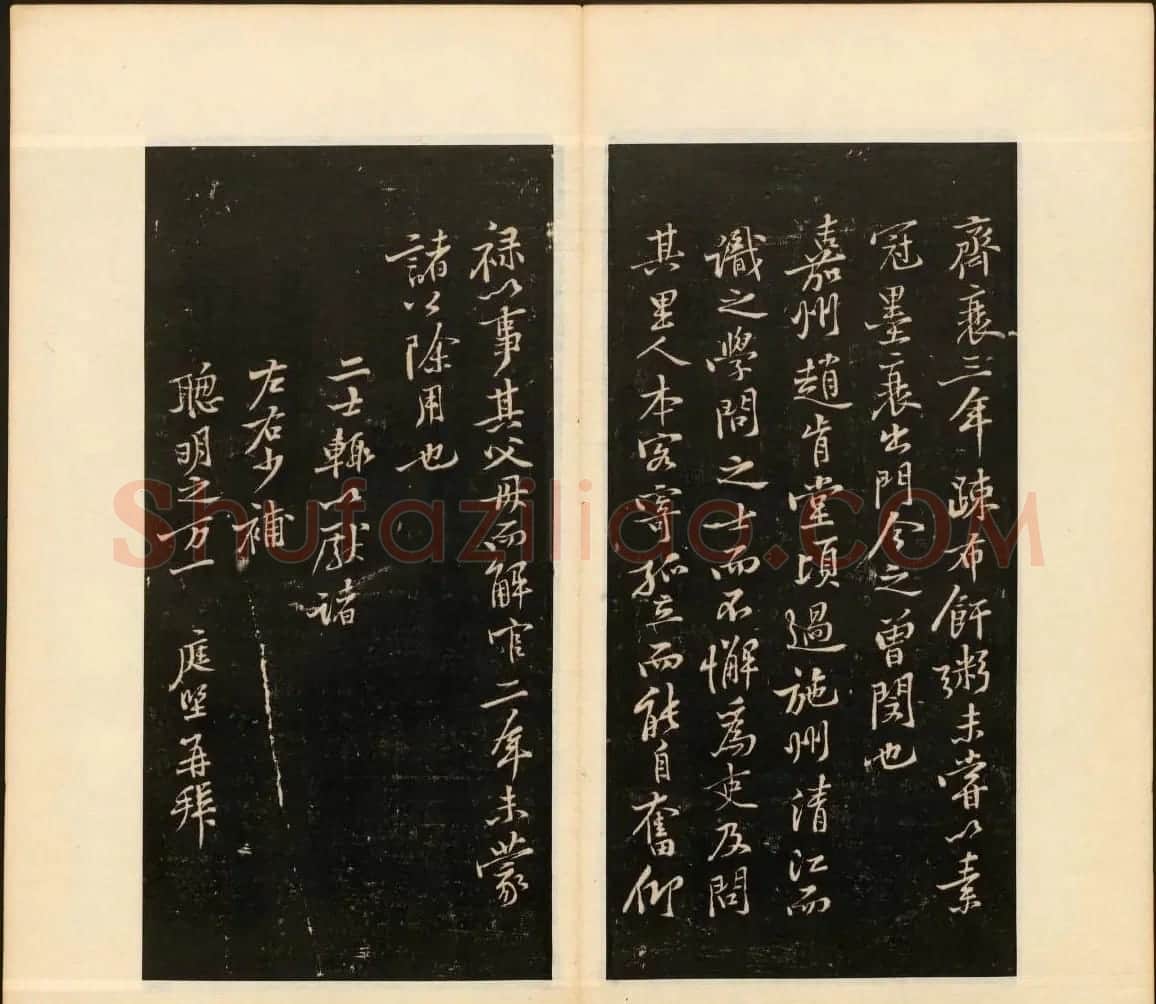 齊衰三年疎布飦粥未嘗以素
冠墨衰出門今之曾閔也
嘉州趙肯堂頃過施州清江而
識之學問之士而不懈為吏及問
其里人本客寄孤立而能自奮仰
禄以事其父母而解官二年未蒙
諸公除用也
二士輒以獻諸
左右少補
聰明之万一 庭堅再拜
Shufaziliao.COM